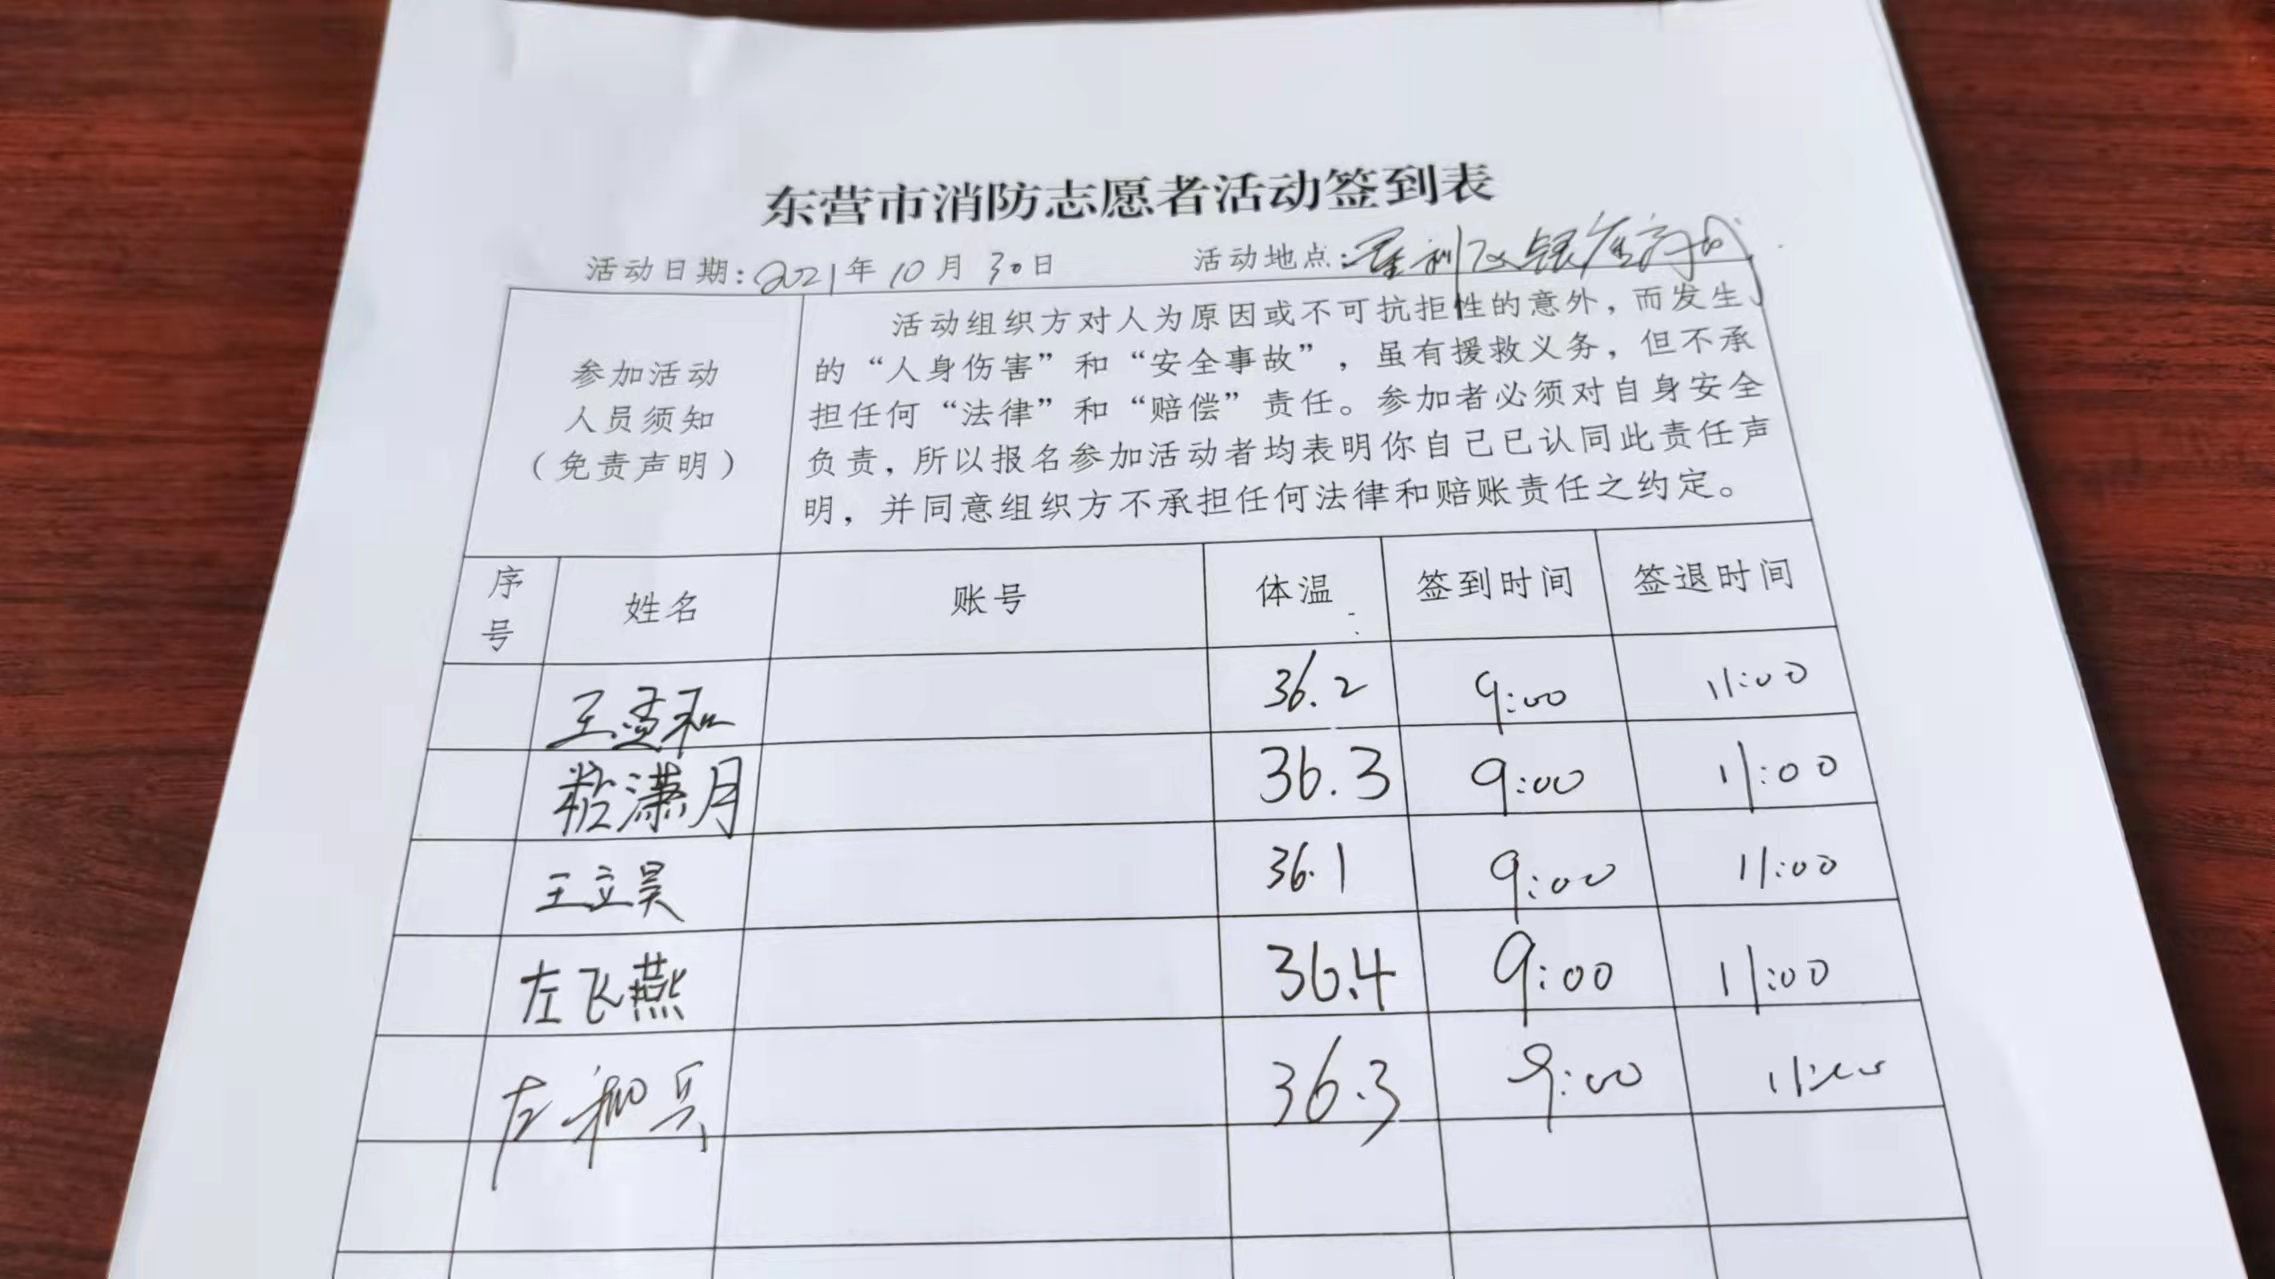 东营市消防志愿者活动签到表
活动日期:2021年10月30日 活动地点:垦利区
参加活动
人员须知
（免责声明）
活动组织方对人为原因或不可抗拒性的意外，而发生
的“人身伤害”和“安全事故”，虽有援救义务，但不承
担任何“法律”和“赔偿”责任。参加者必须对自身安全
负责，所以报名参加活动者均表明你自己已认同此责任声
明，并同意组织方不承担任何法律和赔账责任之约定。
序号 姓名 账号 体温 签到时间 签退时间
王孟和 36.2 9:00 11:00
粘潇月 36.3 9:00 11:00
王立昊 36.1 9:00 11:00
左飞燕 36.4 9:00 11:00
左 兵 36.3 9:00 11:00